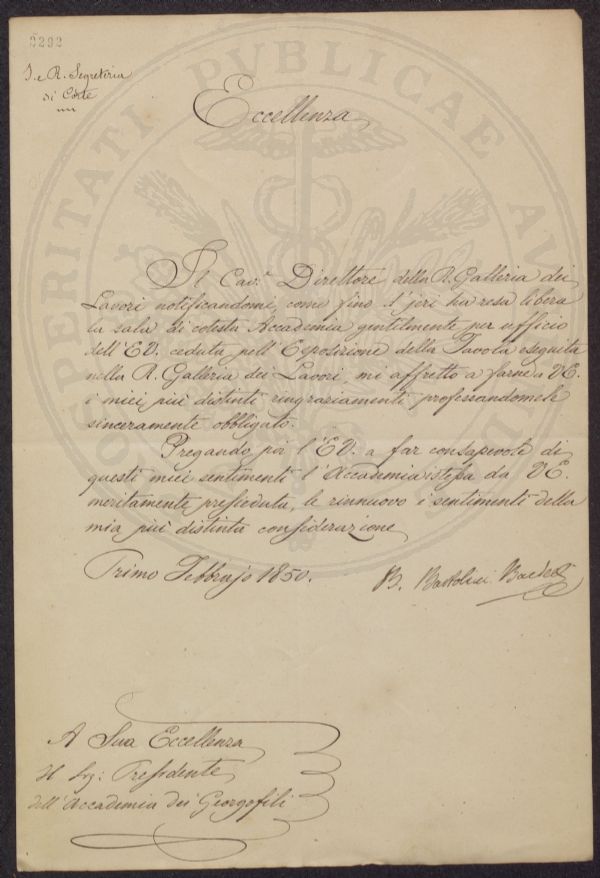 2292
I. e R. Segreteria
di Corte
Eccellenza
Il Cav.e Direttore della R. Galleria dei
Lavori notificandomi, come fino d'jeri ha resa libera
la sala di cotesta Accademia gentilmente per ufficio
dell'EV. ceduta pell'Esposizione della Tavola eseguita
nella R. Galleria dei Lavori, mi affretto a farne a VE.
i miei più distinti ringraziamenti professandomele
sinceramente obbligato.
Pregando poi l'EV. a far consapevole di
questi miei sentimenti l'Accademia istessa da VE.
meritamente presieduta, le rinnuovo i sentimenti della
mia più distinta considerazione
Primo Febbrajo 1850.
B. Bartolini
A Sua Eccellenza
Il Sig: Presidente
dell'Accademia dei Georgofili
PROSPERITATI PUBLICAE AU